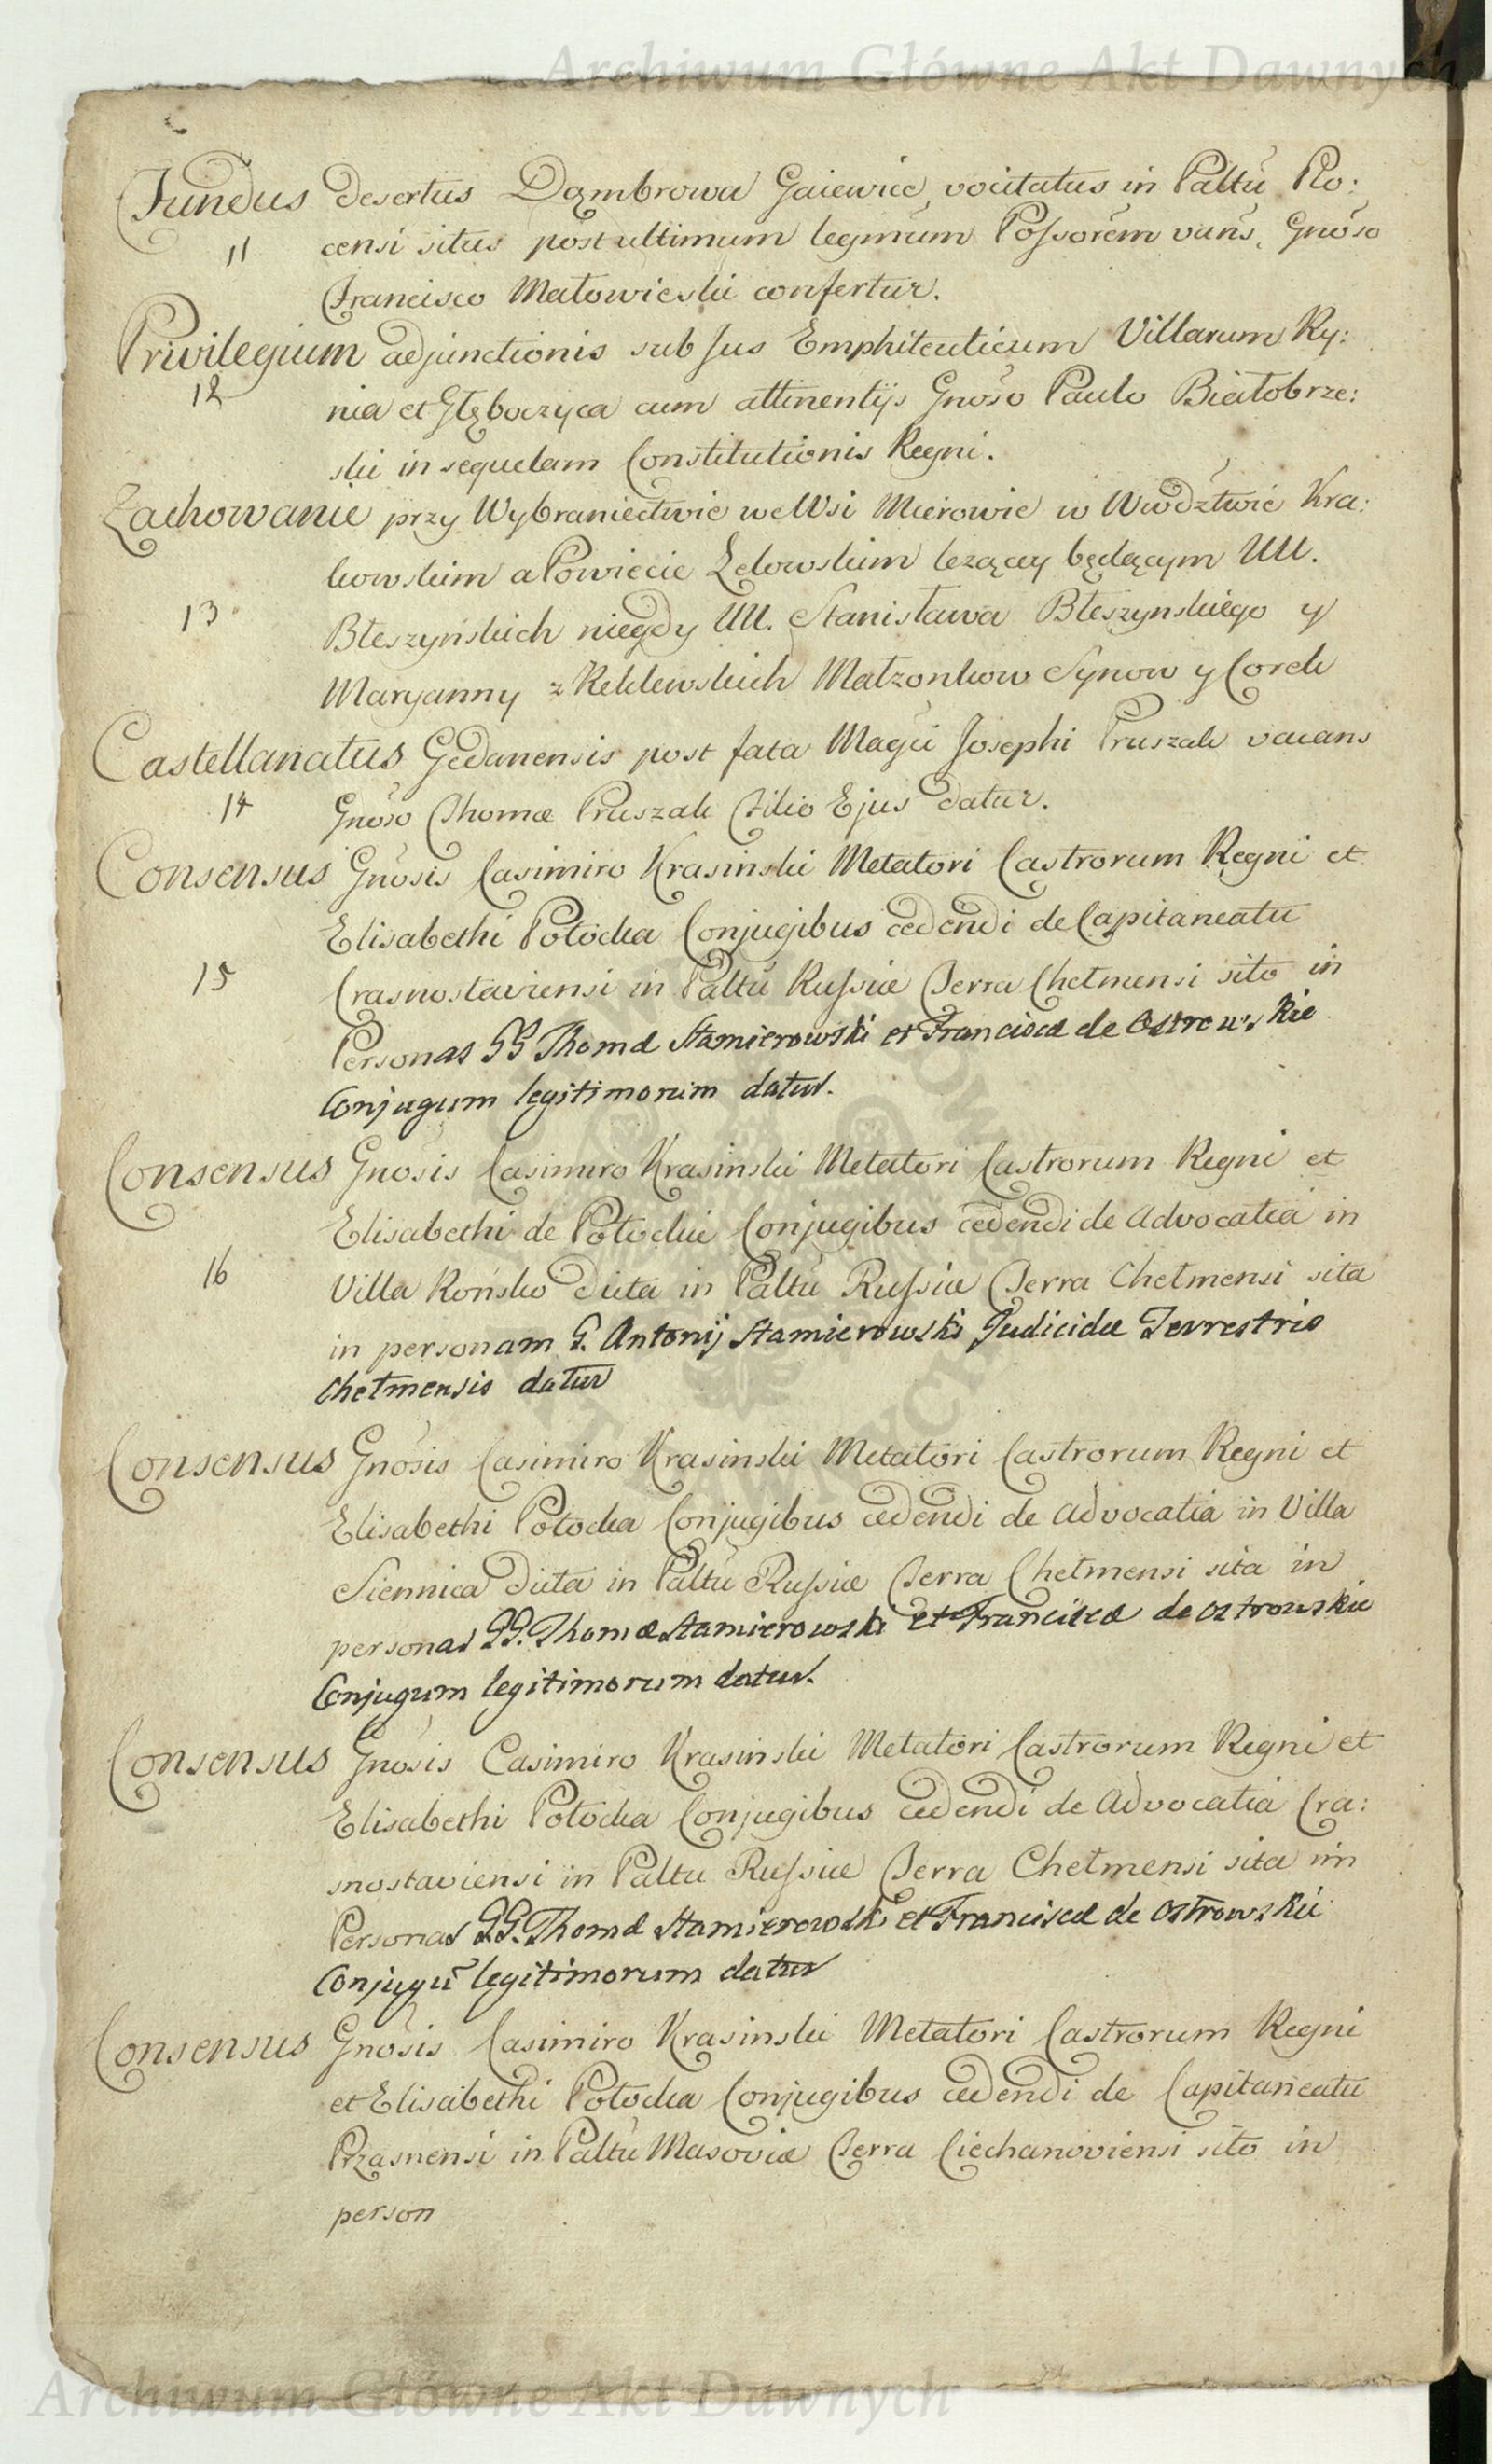 Archiwum Główne Akt Dawnych
Fundus desertus Dąmbrowa Gaiewice vocitatus in Paltu Plo:
11 censi situs post ultimum legmum Possorem vans, Gnoso
Francisco Małowieski confertur.
Privilegium adjunctionis sub Jus Emphiteuticum Villarum Ry:
12 nia et Głęboczyca cum attinentijs Gnoso Paulo Białobrze:
ski in sequelam Constitutionis Regni.
Zachowanie przy Wybraniectwie we Wsi Mierowie w Wwdztwie Kra:
kowskim a Powiecie Lelowskim leżącey będącym UU.
13 Błeszyńskich niegdy UU. Stanisława Błeszynskiego y
Maryanny z Reklewskich Małzonkow Synow y Corek
Castellanatus Gedanensis post fata Magci Josephi Pruszak vacans
14 Gnoso Thomæ Pruszak Filio Ejus datur.
Consensus Gnosis Casimiro Krasinski Metatori Castrorum Regni et
Elisabethi Potocka Conjugibus cedendi de Capitaneatu
15 Crasnostaviensi in Paltu Russiæ Terra Chełmensi sito in
Personas GG Thomæ Stamierowski et Franciscæ de Ostrowskie
Conjugum legitimorum datur.
Consensus Gnosis Casimiro Krasinski Metatori Castrorum Regni et
Elisabethi de Potockie Conjugibus cedendi de Advocatia in
16 Villa Końsko dicta in Paltu Russiæ Terra Chełmensi sita
in personam G. Antonij Stamierowski Judicidæ Terrestris
Chełmensis datur
Consensus Gnosis Casimiro Krasinski Metatori Castrorum Regni et
Elisabethi Potocka Conjugibus cedendi de Advocatia in Villa
Siennica dicta in Paltu Russiæ Terra Chełmensi sita in
personas GG. Thomæ Stamierowski et Franciscæ de Ostrowskie
Conjugum legitimorum datur.
Consensus Gnosis Casimiro Krasinski Metatori Castrorum Regni et
Elisabethi Potocka Conjugibus cedendi de Advocatia Cra:
snostaviensi in Paltu Russiæ Terra Chełmensi sita in
Personas GG. Thomæ Stamierowski et Franciscæ de Ostrowskie
Conjugu legitimorum datur
Consensus Gnosis Casimiro Krasinski Metatori Castrorum Regni
et Elisabethi Potocka Conjugibus cedendi de Capitaneatu
Przasnensi in Paltu Masoviæ Terra Ciechanoviensi sito in
person
Archiwum Główne Akt Dawnych